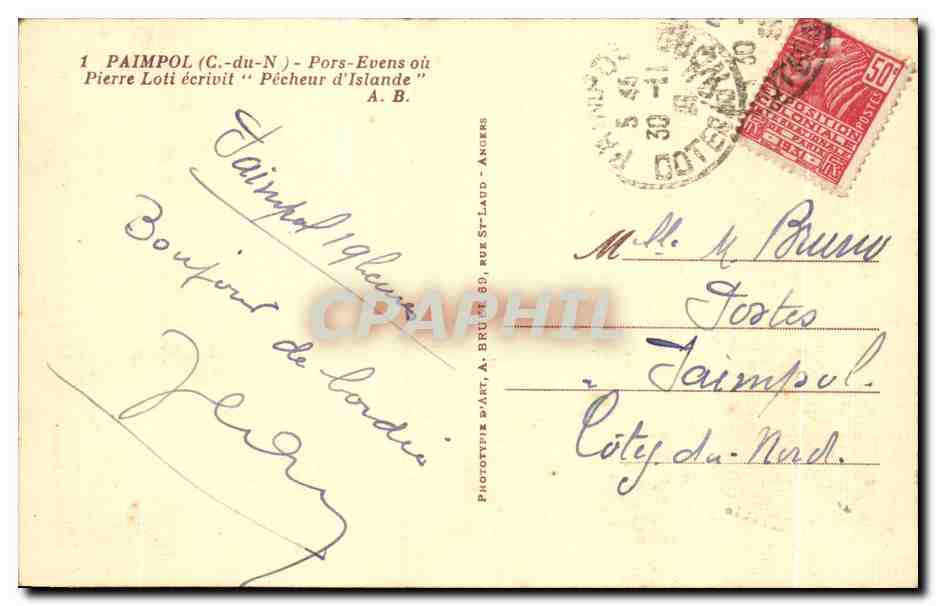 1 PAIMPOL (C.-du-N) - Pors-Evens où
Pierre Loti écrivit " Pêcheur d'Islande "
A. B.
Paimpol 19 heures
Bonjour de
PHOTOTYPIE D'ART, A. BRUEL 89, RUE ST-LAUD - ANGERS
CPAPHIL
PAIMPOL
5 45
30 - 11
31
COTES DU NORD
50c
POSTES
EXPOSITION
COLONIALE
INTERNATIONALE
DE PARIS
1931
Mlle M Bruno
Postes
Paimpol.
Côtes-du-Nord.